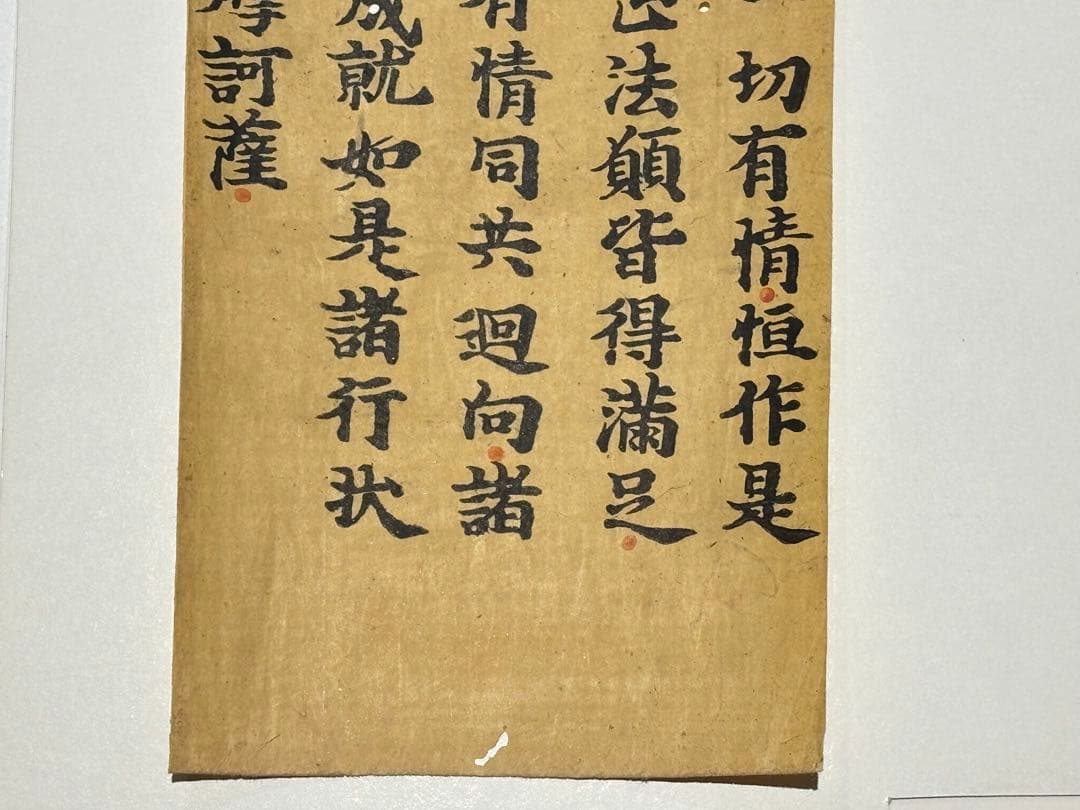 切有情恒作是
法願皆得滿足
有情同共迴向諸
成就如是諸行状
摩訶薩